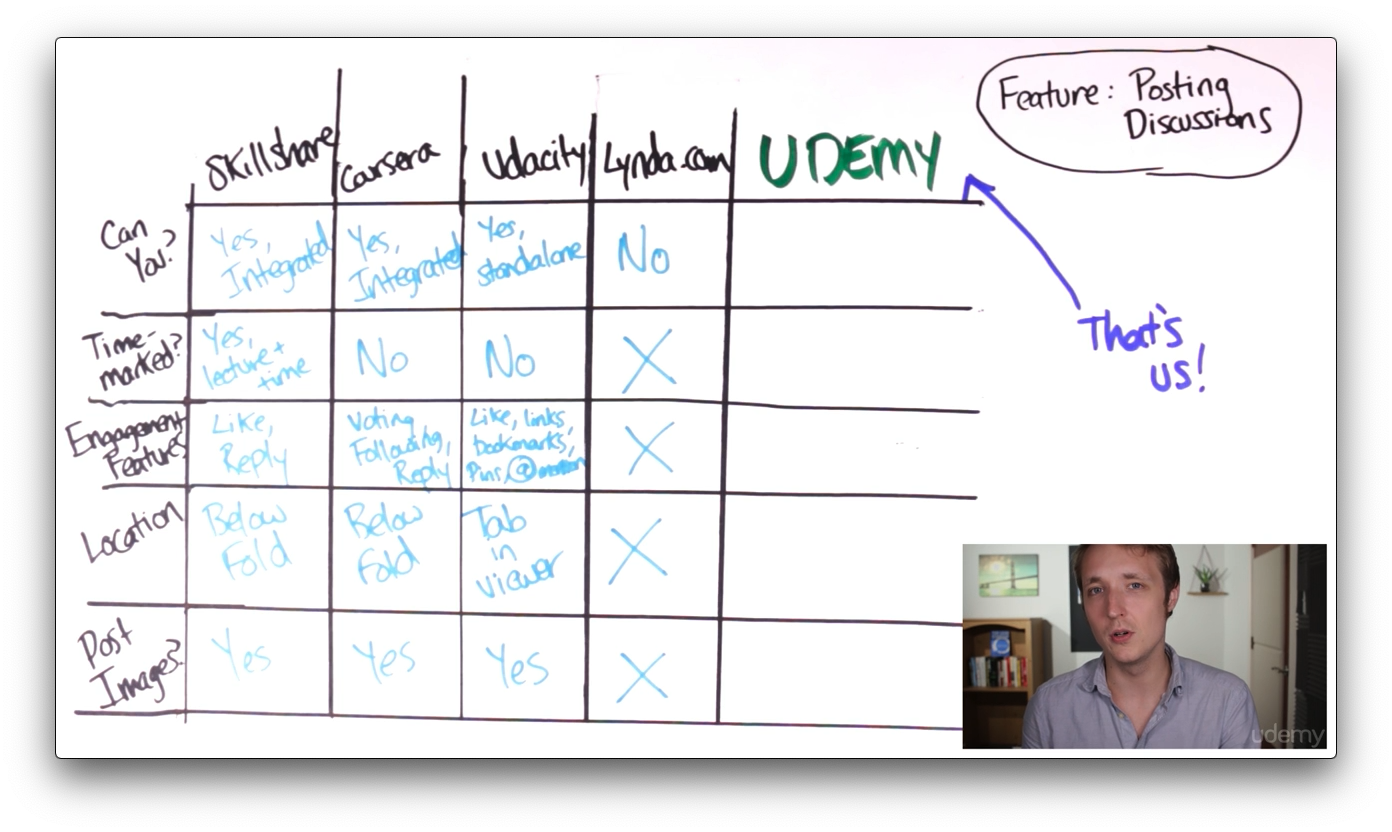 Feature: Posting
Discussions
Skillshare Coursera Udacity Lynda.com UDEMY
Can
You?
Yes,
Integrated
Yes,
Integrated
Yes,
standalone
No
That's
us!
Time-
marked?
Yes,
lecture +
time
No
No
X
Engagement
Features
Like,
Reply
Voting
Following,
Reply
Like, links,
bookmarks,
Pins, @mention
X
Location
Below
Fold
Below
Fold
Tab
in
viewer
X
Post
Images?
Yes
Yes
Yes
X
udemy